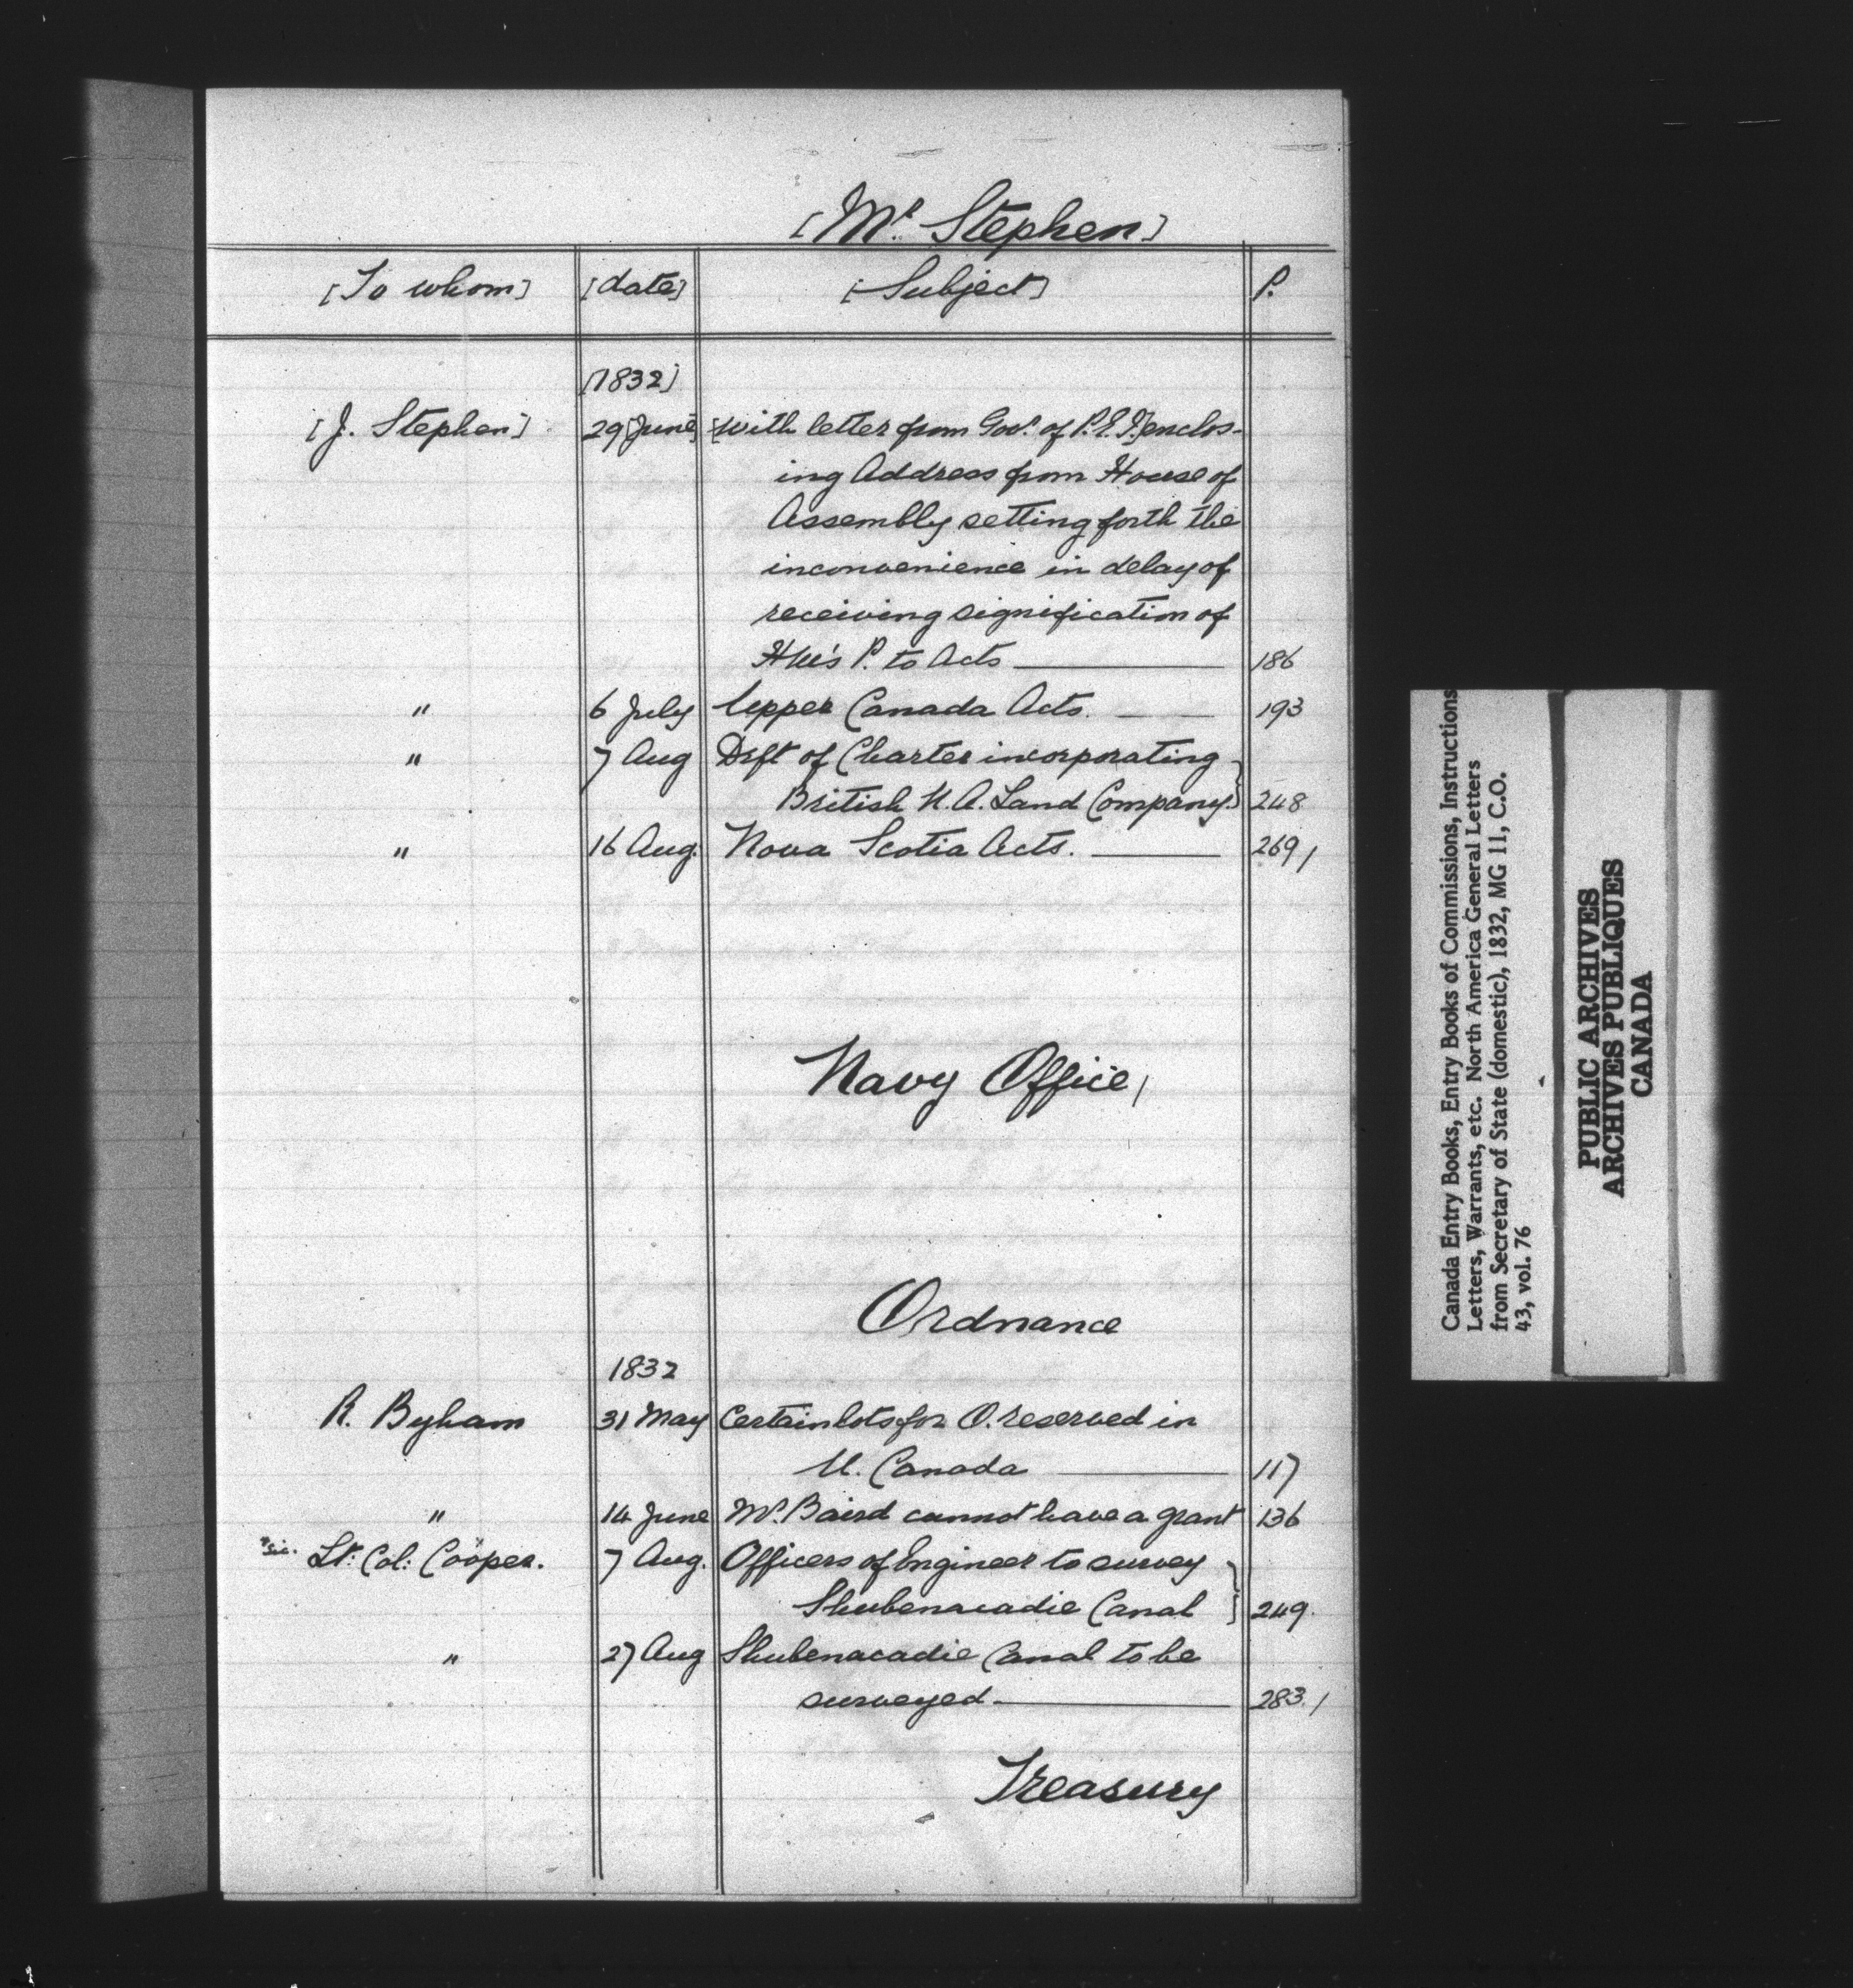 [Mr. Stephen]
[To whom] [date] [Subject] P.
[1832]
[J. Stephen] 29 [June] [with letter from Govr. of P.E.I.] enclos-
ing Address from House of
Assembly setting forth the
inconvenience in delay of
receiving signification of
H M's P. to Acts 186
" 6 July Upper Canada Acts. 193
" 7 Aug Drft of Charter incorporating
British N. A. Land Company. 248
" 16 Aug. Nova Scotia Acts. 269/
Navy Office/
Ordnance
1832
R. Byham 31 May Certain lots for O. reserved in
U. Canada 117
" 14 June Mr. Baird cannot have a grant 136
"sic. Lt. Col: Cooper. 7 Aug. Officers of Engineer to survey
Shubenacadie Canal 249.
" 27 Aug Shubenacadie Canal to be
surveyed 283./
Treasury
Canada Entry Books, Entry Books of Commissions, Instructions
Letters, Warrants, etc. North America General Letters
from Secretary of State (domestic), 1832, MG 11, C.O.
43, vol. 76
PUBLIC ARCHIVES
ARCHIVES PUBLIQUES
CANADA